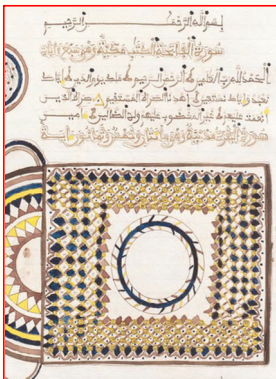 بسم الله الرحمن الرحيم
سورة الفاتحة الكتاب مكية وهي سبع آيات
الحمد لله رب العلمين الرحمن الرحيم ملك يوم الدين إياك
نعبد وإياك نستعين اهدنا الصراط المستقيم صراط الذين
أنعمت عليهم غير المغضوب عليهم ولا الضالين آمين
سورة البقرة مدنية